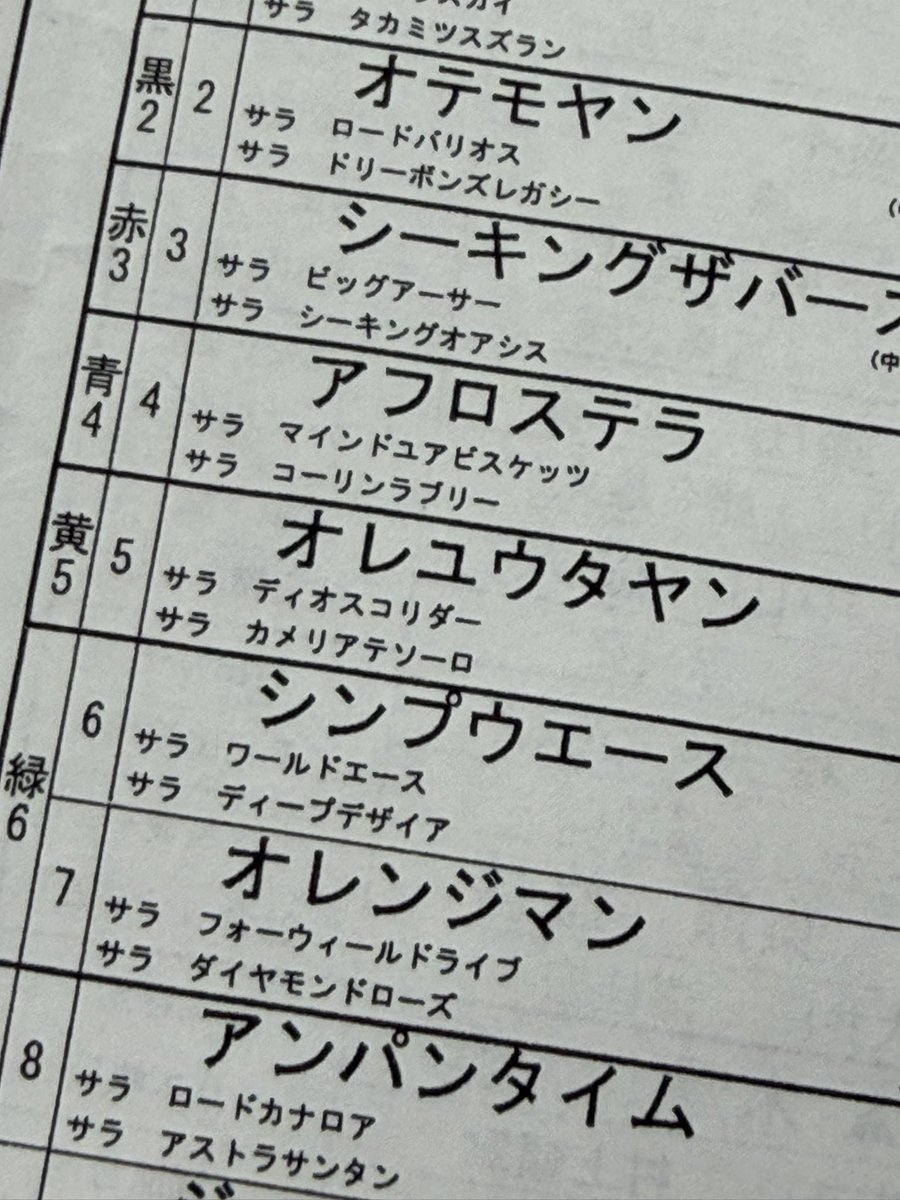 サラ タカミツスズラン
黒 2 2 オテモヤン
サラ ロードバリオス
サラ ドリーボンズレガシー
赤 3 3 シーキングザバー
サラ ビッグアーサー
サラ シーキングオアシス
(中
青 4 4 アフロステラ
サラ マインドユアビスケッツ
サラ コーリンラブリー
黄 5 5 オレユウタヤン
サラ ディオスコリダー
サラ カメリアテソーロ
緑 6 6 シンプウエース
サラ ワールドエース
サラ ディープデザイア
7 オレンジマン
サラ フォーウィールドライブ
サラ ダイヤモンドローズ
8 アンパンタイム
サラ ロードカナロア
サラ アストラサンタン